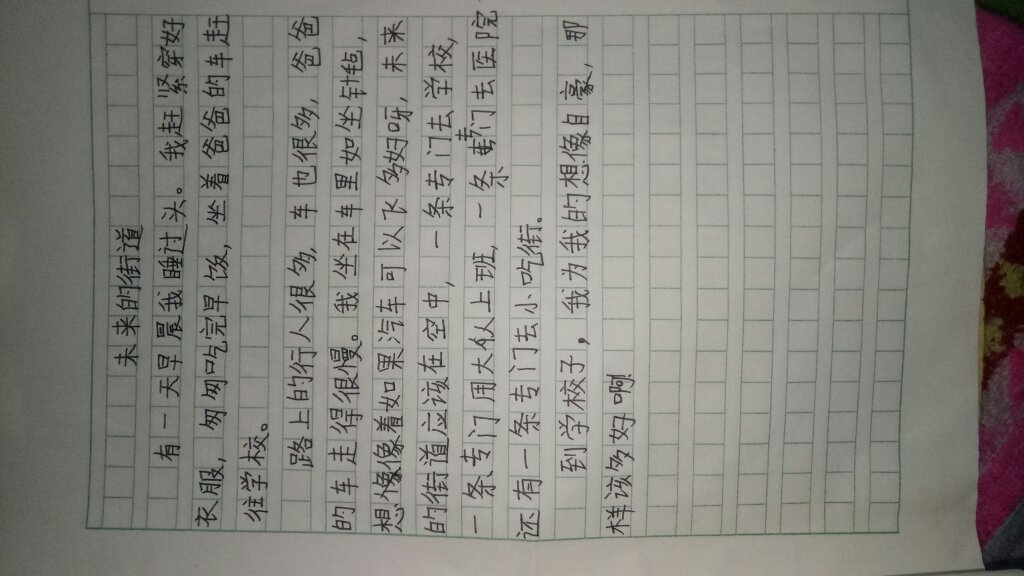 未来的街道
有一天早晨我睡过头。我赶紧穿好
衣服，匆匆吃完早饭，坐着爸爸的车赶
往学校。
路上的行人很多，车也很多，爸爸
的车走得很慢。我坐在车里如坐针毡，
想像着如果汽车可以飞多好呀，未来
的街道应该在空中，一条专门去学校，
一条专门用大从上班，一条专门去医院
还有一条专门去小吃街．
到学校了，我为我的想像自豪，那
样该多好啊！